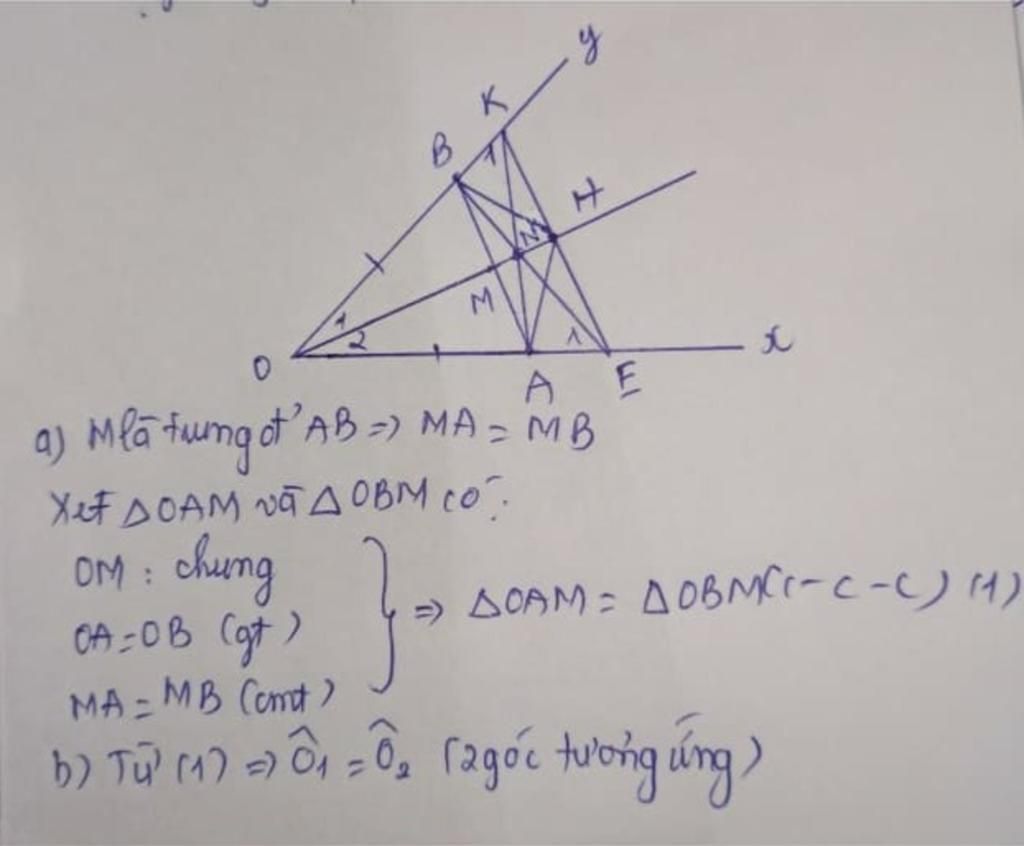 y
K
B
1
H
N
M
1
2
1
O
A
E
x
a) M là trung đ' AB => MA = MB
Xét △OAM và △OBM có:
OM: chung
OA=OB (gt)
MA=MB (cmt)
=> △OAM = △OBM(c-c-c) (1)
b) Từ (1) => Ô1 = Ô2 (2 góc tương ứng)